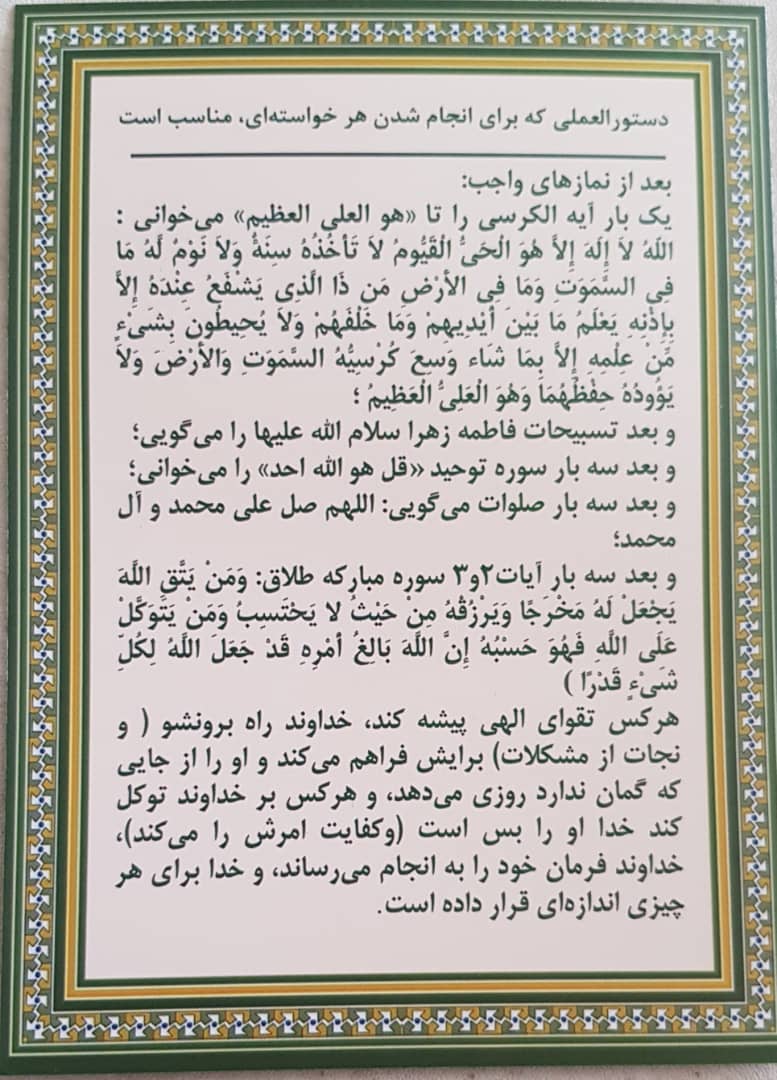 دستورالعملی که برای انجام شدن هر خواسته‌ای، مناسب است
بعد از نمازهای واجب:
یک بار آیه الکرسی را تا «هو العلی العظیم» می‌خوانی :
اللهُ لاَ إِلَهَ إِلاَّ هُوَ الْحَیُّ الْقَیُّومُ لاَ تَأْخُذُهُ سِنَةٌ وَلاَ نَوْمٌ لَهُ مَا
فِی السَّمَوَتِ وَمَا فِی الأَرْضِ مَن ذَا الَّذِی یَشْفَعُ عِنْدَهُ إِلاَّ
بِإِذْنِهِ یَعْلَمُ مَا بَیْنَ أَیْدِیهِمْ وَمَا خَلْفَهُمْ وَلاَ یُحِیطُونَ بِشَیْءٍ
مِّنْ عِلْمِهِ إِلاَّ بِمَا شَاء وَسِعَ کُرْسِیُّهُ السَّمَوَتِ وَالأَرْضَ وَلاَ
یَؤُودُهُ حِفْظُهُمَا وَهُوَ الْعَلِیُّ الْعَظِیمُ ؛
و بعد تسبیحات فاطمه زهرا سلام الله علیها را می‌گویی؛
و بعد سه بار سوره توحید «قل هو الله احد» را می‌خوانی؛
و بعد سه بار صلوات می‌گویی: اللهم صل علی محمد و آل
محمد؛
و بعد سه بار آیات۲و۳ سوره مبارکه طلاق: وَمَنْ یَتَّقِ اللَّهَ
یَجْعَلْ لَهُ مَخْرَجًا وَیَرْزُقْهُ مِنْ حَیْثُ لا یَحْتَسِبُ وَمَنْ یَتَوَکَّلْ
عَلَى اللَّهِ فَهُوَ حَسْبُهُ إِنَّ اللَّهَ بَالِغُ أَمْرِهِ قَدْ جَعَلَ اللَّهُ لِکُلِّ
شَیْءٍ قَدْرًا )
هرکس تقوای الهی پیشه کند، خداوند راه برونشو ( و
نجات از مشکلات) برایش فراهم می‌کند و او را از جایی
که گمان ندارد روزی می‌دهد، و هرکس بر خداوند توکل
کند خدا او را بس است (وکفایت امرش را می‌کند)،
خداوند فرمان خود را به انجام می‌رساند، و خدا برای هر
چیزی اندازه‌ای قرار داده است.